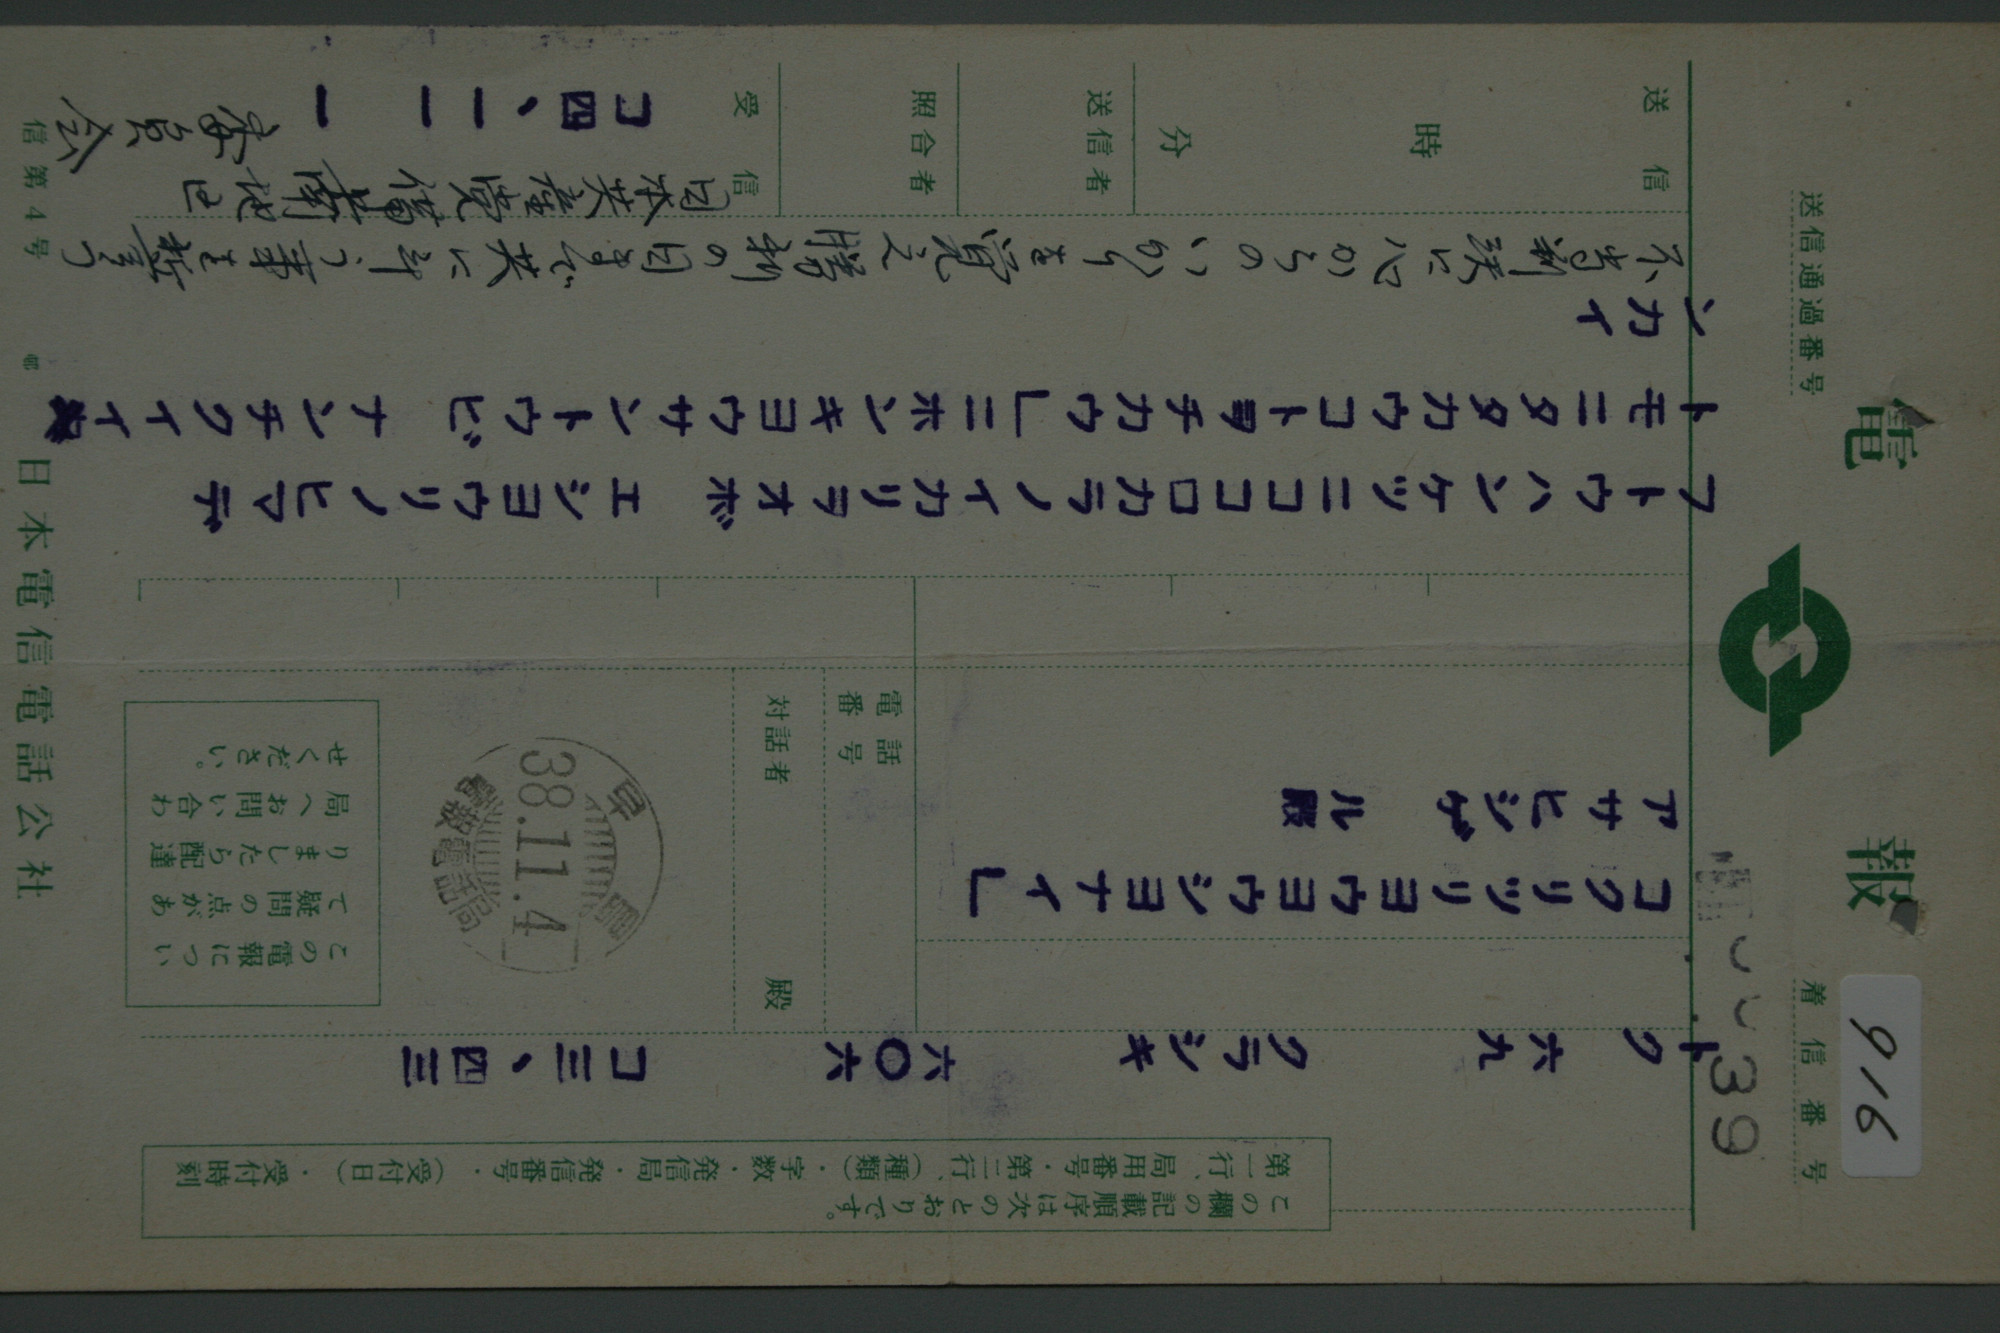 電報
送信通過番号
着信番号
916
39
この欄の記載順序は次のとおりです。
第一行、局用番号・第二行、(種類)・字数・発信局・発信番号・(受付日)・受付時刻
トク 六九 クラシキ 六〇六 コ三、四三
コクリツリヨウヨウシヨナイ」
アサヒシゲル 殿
電話番号
対話者 殿
早島
38.11.4
電報電話局
この電報につい
て疑問の点があ
りましたら配達
局へお問い合わ
せください。
フトウハンケツニココロカラノイカリヲオボ エシヨウリノヒマデ
トモニタタカウコトヲチカウ」ニホンキヨウサントウビ ナンチクイイ
ンカイ
不当判決に心からのいかりを覚え勝利の日まで共に斗う事を誓う
日本共産党備南地区
委員会
送信 時 分
送信者
照合者
受信
コ四、一一 一
信第4号
日本電信電話公社